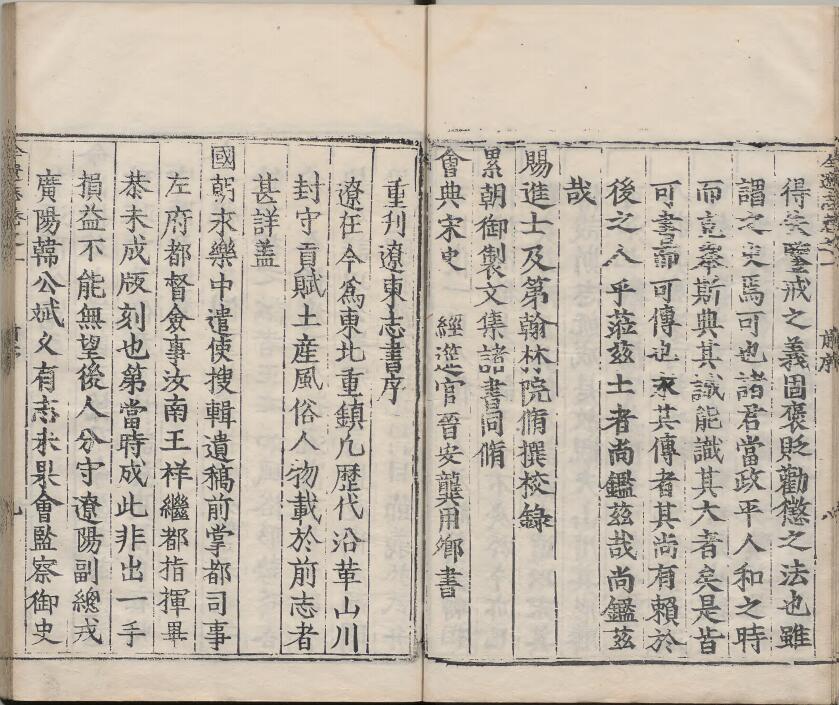 得失鑒戒之義固褒貶勸懲之法也雖
謂之史焉可也諸君當政平人和之時
而克舉斯典其識能識其大者矣是皆
可書而可傳也永其傳者其尚有賴於
後之人乎蒞茲土者尚鑑茲哉尚鑑茲
哉
賜進士及第翰林院脩撰校錄
累朝御製文集諸書同脩
會典宋史 經筵官晉安龔用鄉書
八
重刊遼東志書序
遼在今爲東北重鎮凡歷代沿革山川
封守貢賦土産風俗人物載於前志者
甚詳蓋
國朝永樂中遣使搜輯遺稿前掌都司事
左府都督僉事汝南王祥繼都指揮畢
恭未成版刻也第當時成此非出一手
損益不能無望後人分守遼陽副總戎
廣陽韓公斌久有志未果會監察御史
九